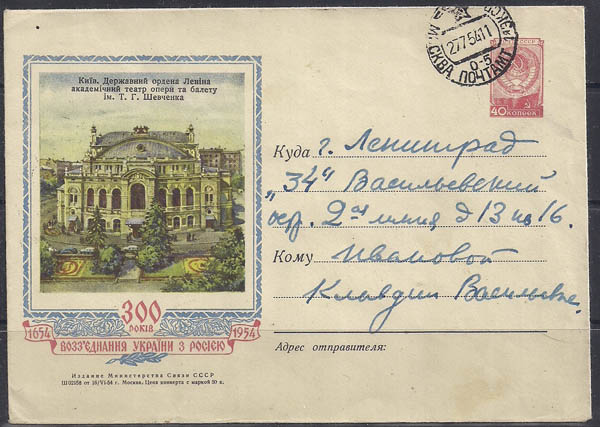 Київ. Державний ордена Леніна
академічний театр опери та балету
ім. Т. Г. Шевченка
300
РОКІВ
1654 1954
ВОЗЗ'ЄДНАННЯ УКРАЇНИ З РОСІЄЮ
Издание Министерства Связи СССР
Ш 02158 от 16/VI-54 г. Москва. Цена конверта с маркой 50 к.
МОСКВА ПОЧТАМТ
27 7 54 11
0-5
40 КОПЕЕК
Куда г. Ленинград
„34" Васильевский
остр. 2ая линия д 13 кв 16.
Кому Ивановой
Клавдии Васильевне.
Адрес отправителя: